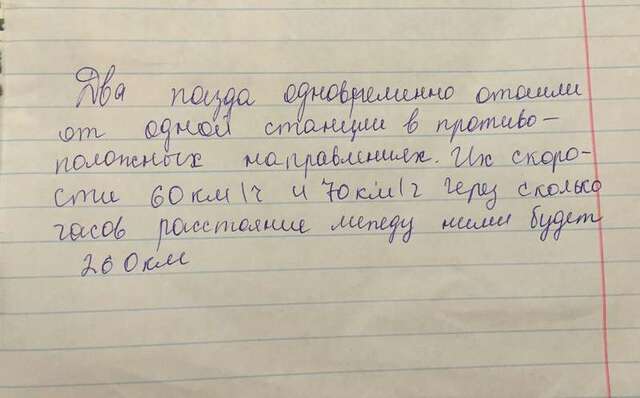 Два поезда одновременно отошли
от одной станции в противо-
положных направлениях. Их скоро-
сти 60 км/ч и 70 км/ч через сколько
часов расстояние между ними будет
260 км